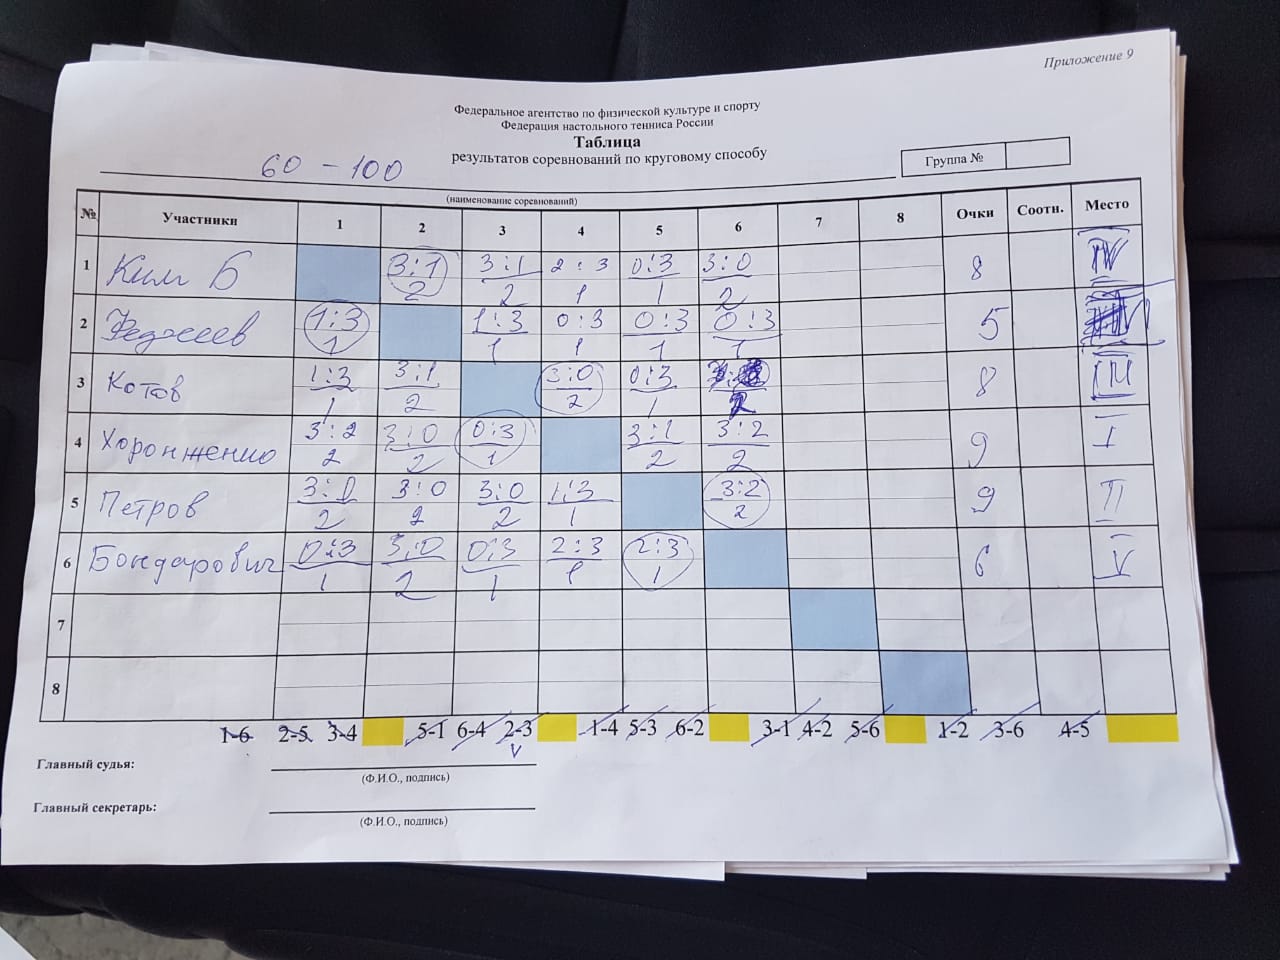 Приложение 9
Федеральное агентство по физической культуре и спорту
Федерация настольного тенниса России
Таблица
результатов соревнований по круговому способу
60 - 100
Группа №
(наименование соревнований)
№ Участники 1 2 3 4 5 6 7 8 Очки Соотн. Место
1 Ким Б 3:1 3:1 2:3 0:3 3:0 8 IV
2 2 1 1 2
2 1:3 1:3 0:3 0:3 0:3 5
1 1 1 1 1
3 Котов 1:3 3:1 3:0 0:3 8 III
1 2 2 1 2
4 Хоронженко 3:2 3:0 0:3 3:1 3:2 9 I
2 2 1 2 2
5 Петров 3:0 3:0 3:0 1:3 3:2 9 II
2 2 2 1 2
6 Бондарович 0:3 3:0 0:3 2:3 2:3 6 V
1 2 1 1 1
7
8
1-6 2-5 3-4 5-1 6-4 2-3 1-4 5-3 6-2 3-1 4-2 5-6 1-2 3-6 4-5
Главный судья:
(Ф.И.О., подпись)
Главный секретарь:
(Ф.И.О., подпись)